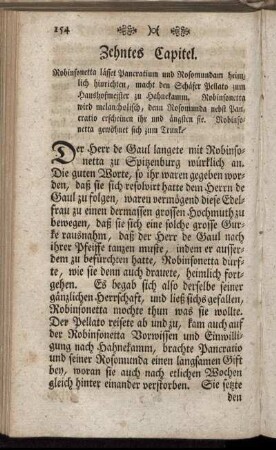 154
Zehntes Capitel.
Robinsonetta lässet Pancratium und Rosomundam heim-
lich hinrichten, macht den Schäfer Pellato zum
Haushofmeister zu Hahnekamm. Robinsonetta
wird melancholisch, denn Rosomunda nebst Pan-
cratio erscheinen ihr und ängsten sie. Robinso-
netta gewöhnet sich zum Trunke
Der Herr de Gaul langete mit Robinso-
netta zu Spitzenburg würklich an.
Die guten Worte, so ihr waren gegeben wor-
den, daß sie sich resolvirt hatte dem Herrn de
Gaul zu folgen, waren vermögend diese Edel-
frau zu einen dermassen grossen Hochmuth zu
bewegen, daß sie sich eine solche grosse Gur-
ke rausnahm, daß der Herr de Gaul nach
ihrer Pfeiffe tanzen muste, indem er ausser
dem zu befürchten hatte, Robinsonetta dürf-
te, wie sie denn auch drauete, heimlich fort-
gehen. Es begab sich also derselbe seiner
gänzlichen Herrschaft, und ließ sichs gefallen,
Robinsonetta mochte thun was sie wollte.
Der Pellato reisete ab und zu, kam auch auf
der Robinsonetta Vorwissen und Einwilli-
gung nach Hahnekamm, brachte Pancratio
und seiner Rosomunda einen langsamen Gift
bey, woran sie auch nach etlichen Wochen
gleich hinter einander verstorben. Sie setzte
den